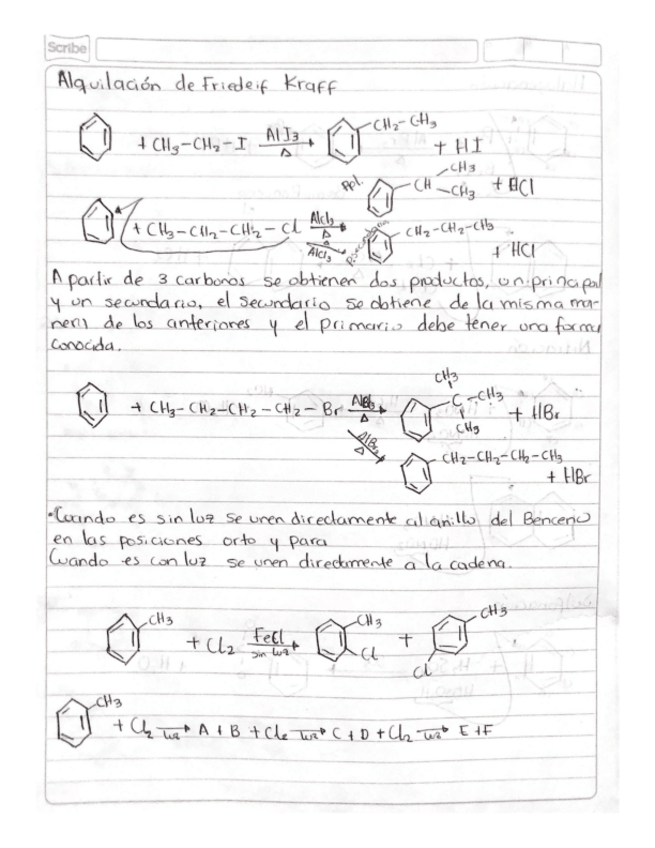 Scribe
Alquilación de Friedeif Kraff
+ CH3-CH2-I AlI3 Δ CH2-CH3 + HI
Ppl. CH CH3 CH3 + HCl
+ CH3-CH2-CH2-Cl AlCl3 Δ AlCl3 CH2-CH2-CH3 + HCl
A partir de 3 carbonos se obtienen dos productos, un principal
y un secundario, el secundario se obtiene de la misma ma-
nera de los anteriores y el primario debe tener una forma
conocida.
+ CH3-CH2-CH2-CH2-Br AlBr3 Δ CH3 C-CH3 CH3 + HBr
AlBr3 Δ CH2-CH2-CH2-CH3 + HBr
•Cuando es sin luz se unen directamente al anillo del Benceno
en las posiciones orto y para
Cuando es con luz se unen directamente a la cadena.
CH3 + Cl2 FeCl sin luz CH3 Cl + CH3 Cl
CH3 + Cl2 luz A + B + Cl2 luz C + D + Cl2 luz E + F